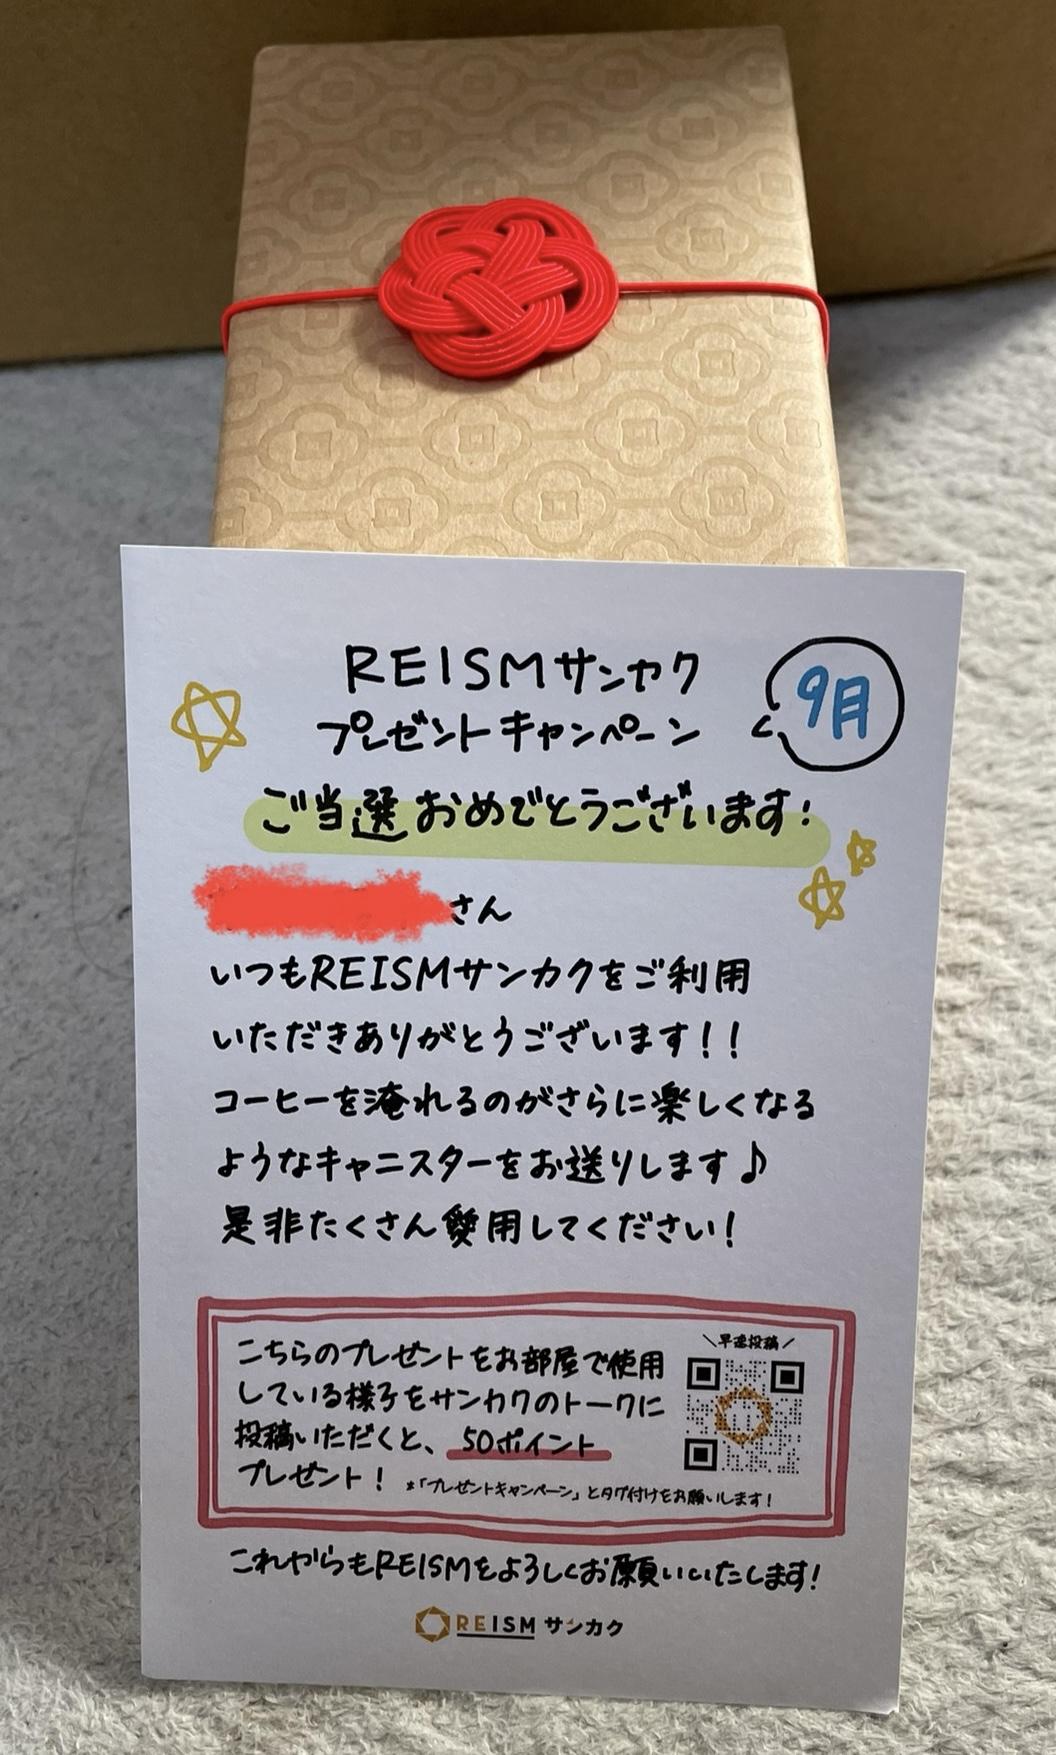 REISMサンカク
プレゼントキャンペーン
9月
ご当選おめでとうございます!
さん
いつもREISMサンカクをご利用
いただきありがとうございます!!
コーヒーを淹れるのがさらに楽しくなる
ようなキャニスターをお送りします♪
是非たくさん愛用してください!
こちらのプレゼントをお部屋で使用
している様子をサンカクのトークに
投稿いただくと、50ポイント
プレゼント!
*「プレゼントキャンペーン」とタグ付けをお願いします!
\早速投稿/
これからもREISMをよろしくお願いいたします!
REISM サンカク